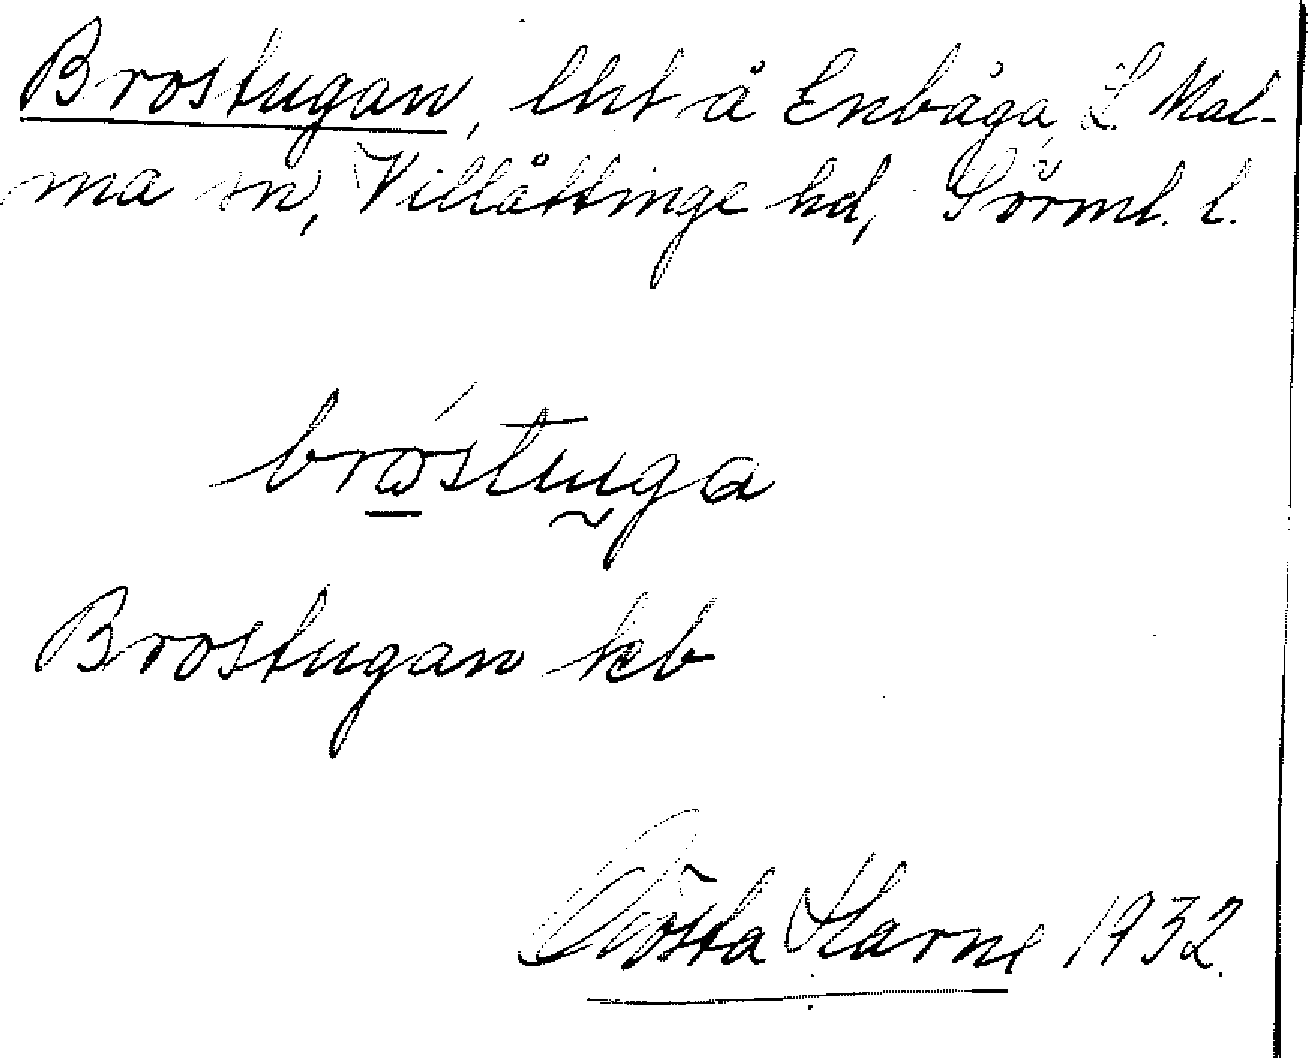 Brostugan, lht å Enbåga, L Mal-
ma sn, Villåttinge hd, Sörml. l.
bróstuga
Brostugan kb
Gösta Harne 1932.